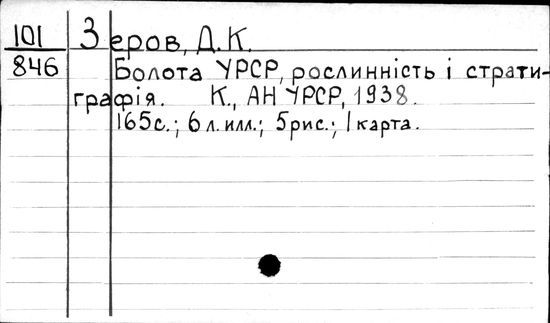 101 Зеров, Д. К.
846 Болота УРСР, рослинність і страти-
графія. К., АН УРСР, 1938.
165с.; 6 л. илл.; 5 рис.; 1 карта.